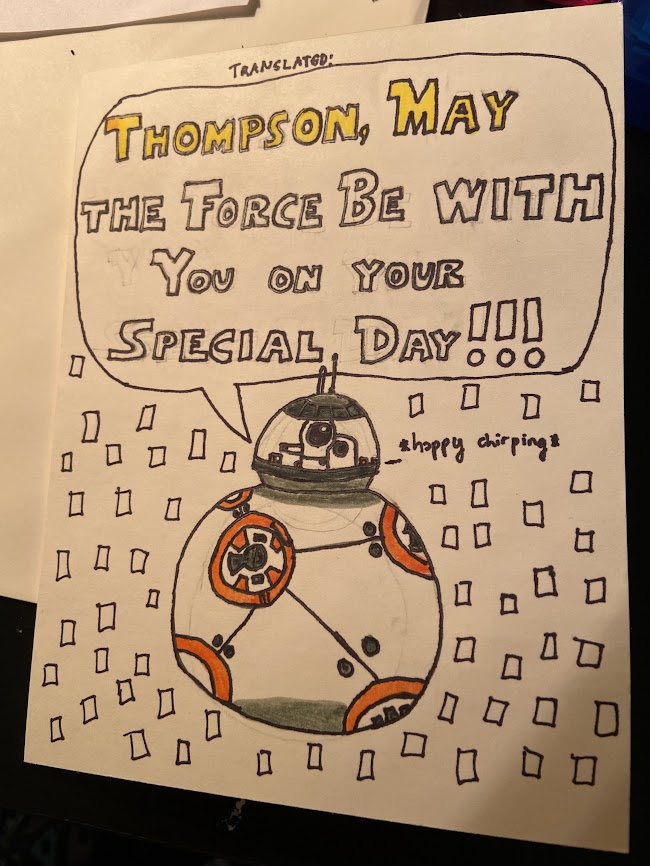 TRANSLATED:
THOMPSON, MAY
THE FORCE BE WITH
YOU ON YOUR
SPECIAL DAY!!!
*happy chirping*